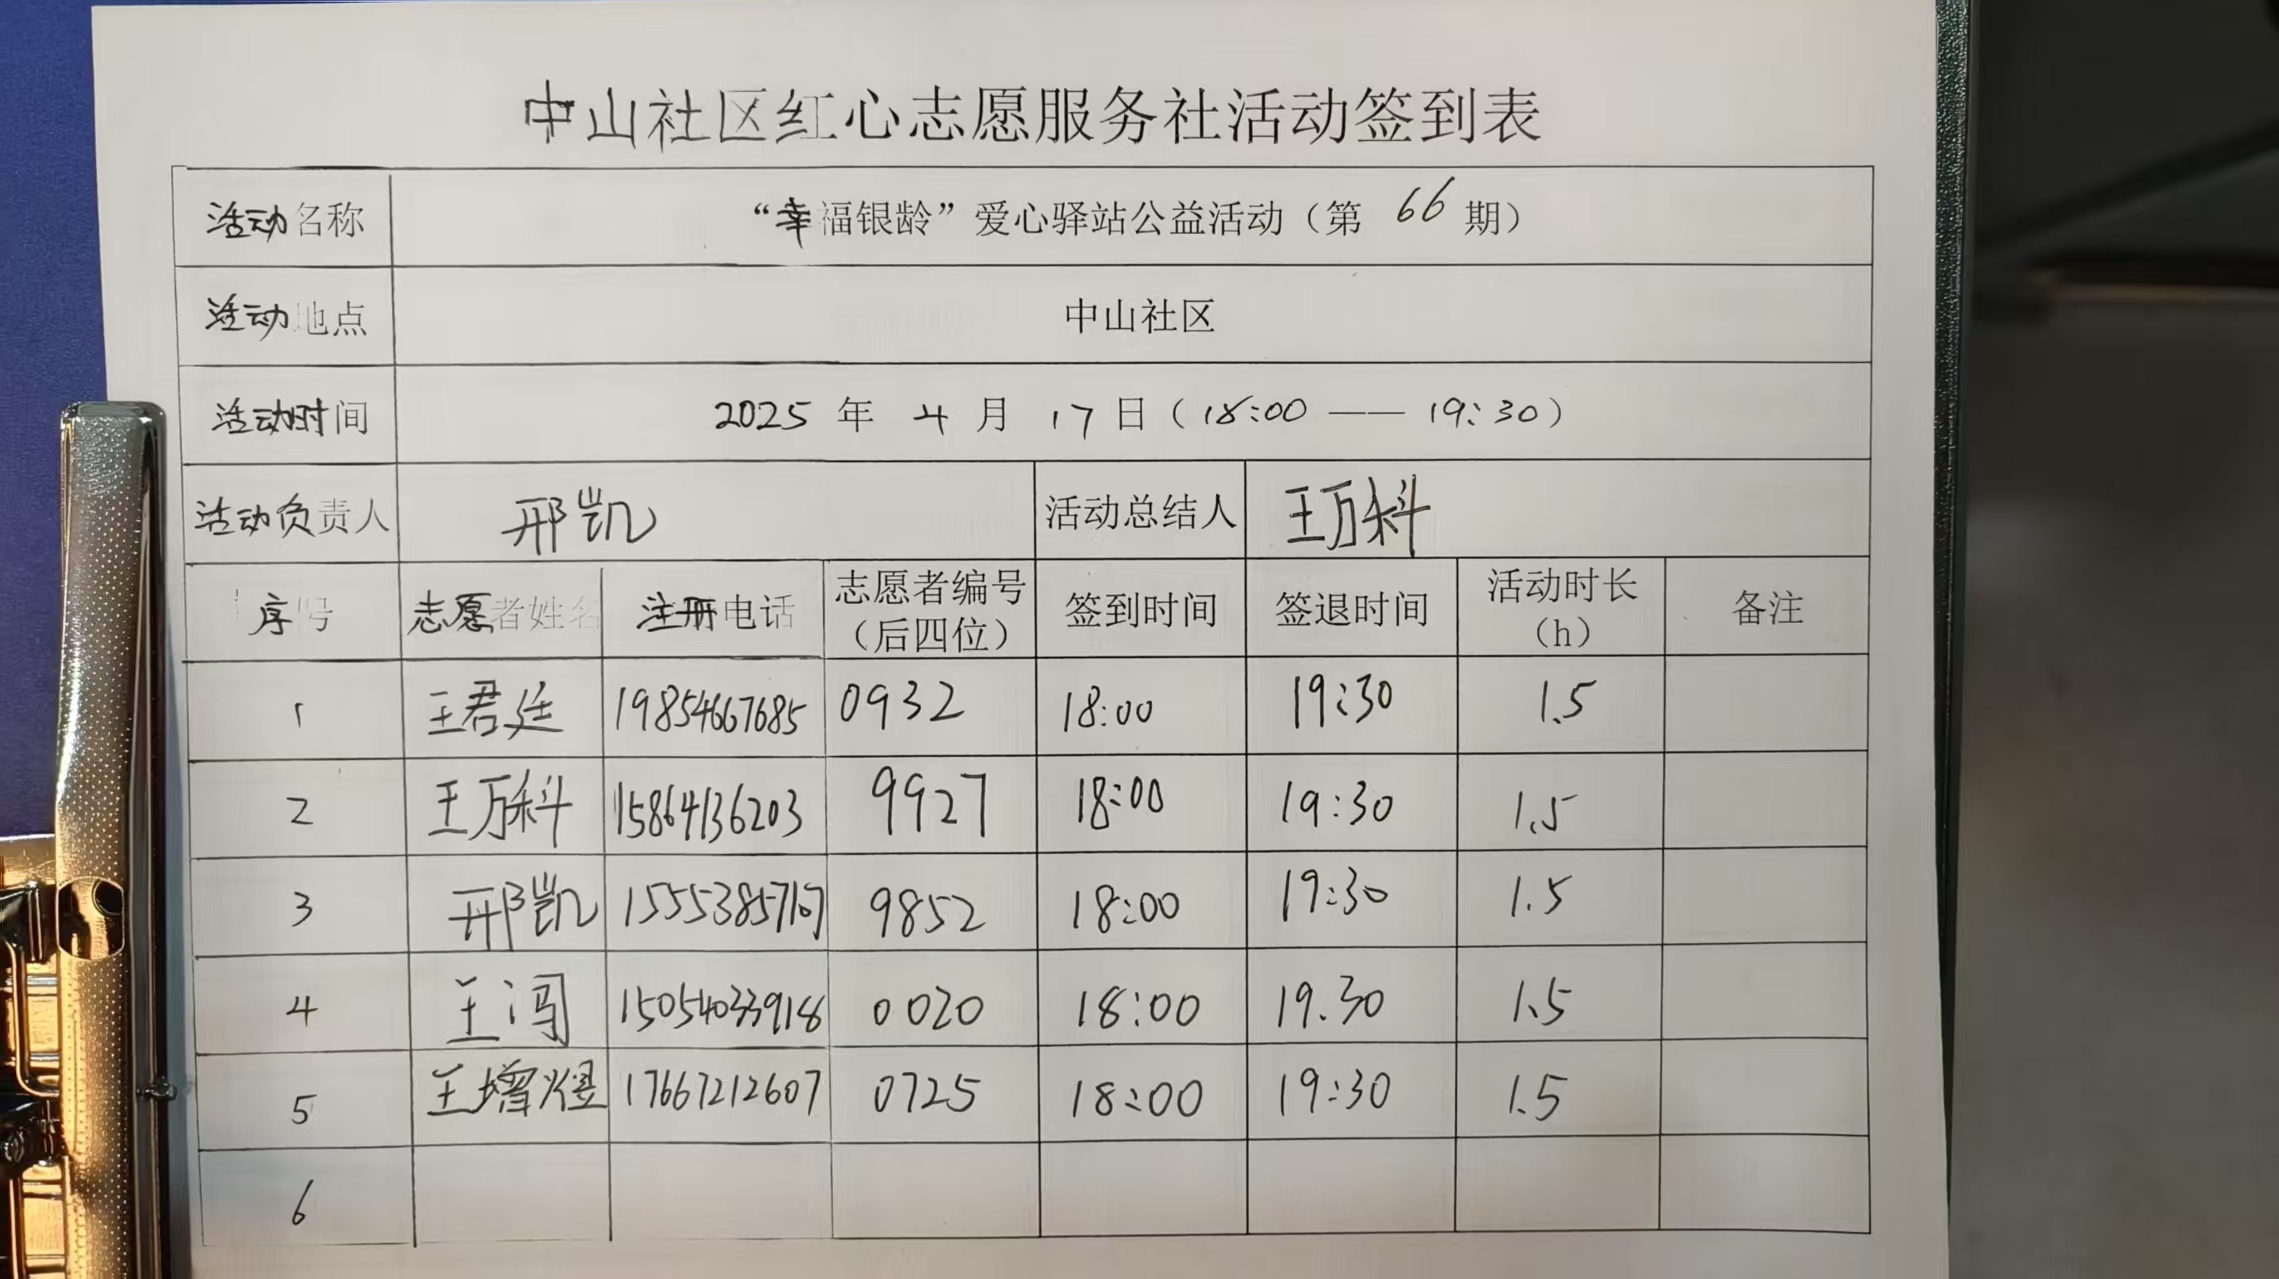 中山社区红心志愿服务社活动签到表
活动名称 “幸福银龄”爱心驿站公益活动（第 66 期）
活动地点 中山社区
活动时间 2025 年 4 月 17 日（18:00 —— 19:30）
活动负责人 邢凯 活动总结人 王万科
序号 志愿者姓名 注册电话 志愿者编号（后四位） 签到时间 签退时间 活动时长（h） 备注
1 王君廷 19854667685 0932 18:00 19:30 1.5
2 王万科 15864136203 9927 18:00 19:30 1.5
3 邢凯 15553857107 9852 18:00 19:30 1.5
4 王闯 15054033918 0020 18:00 19.30 1.5
5 王增煜 17667212607 0725 18:00 19:30 1.5
6